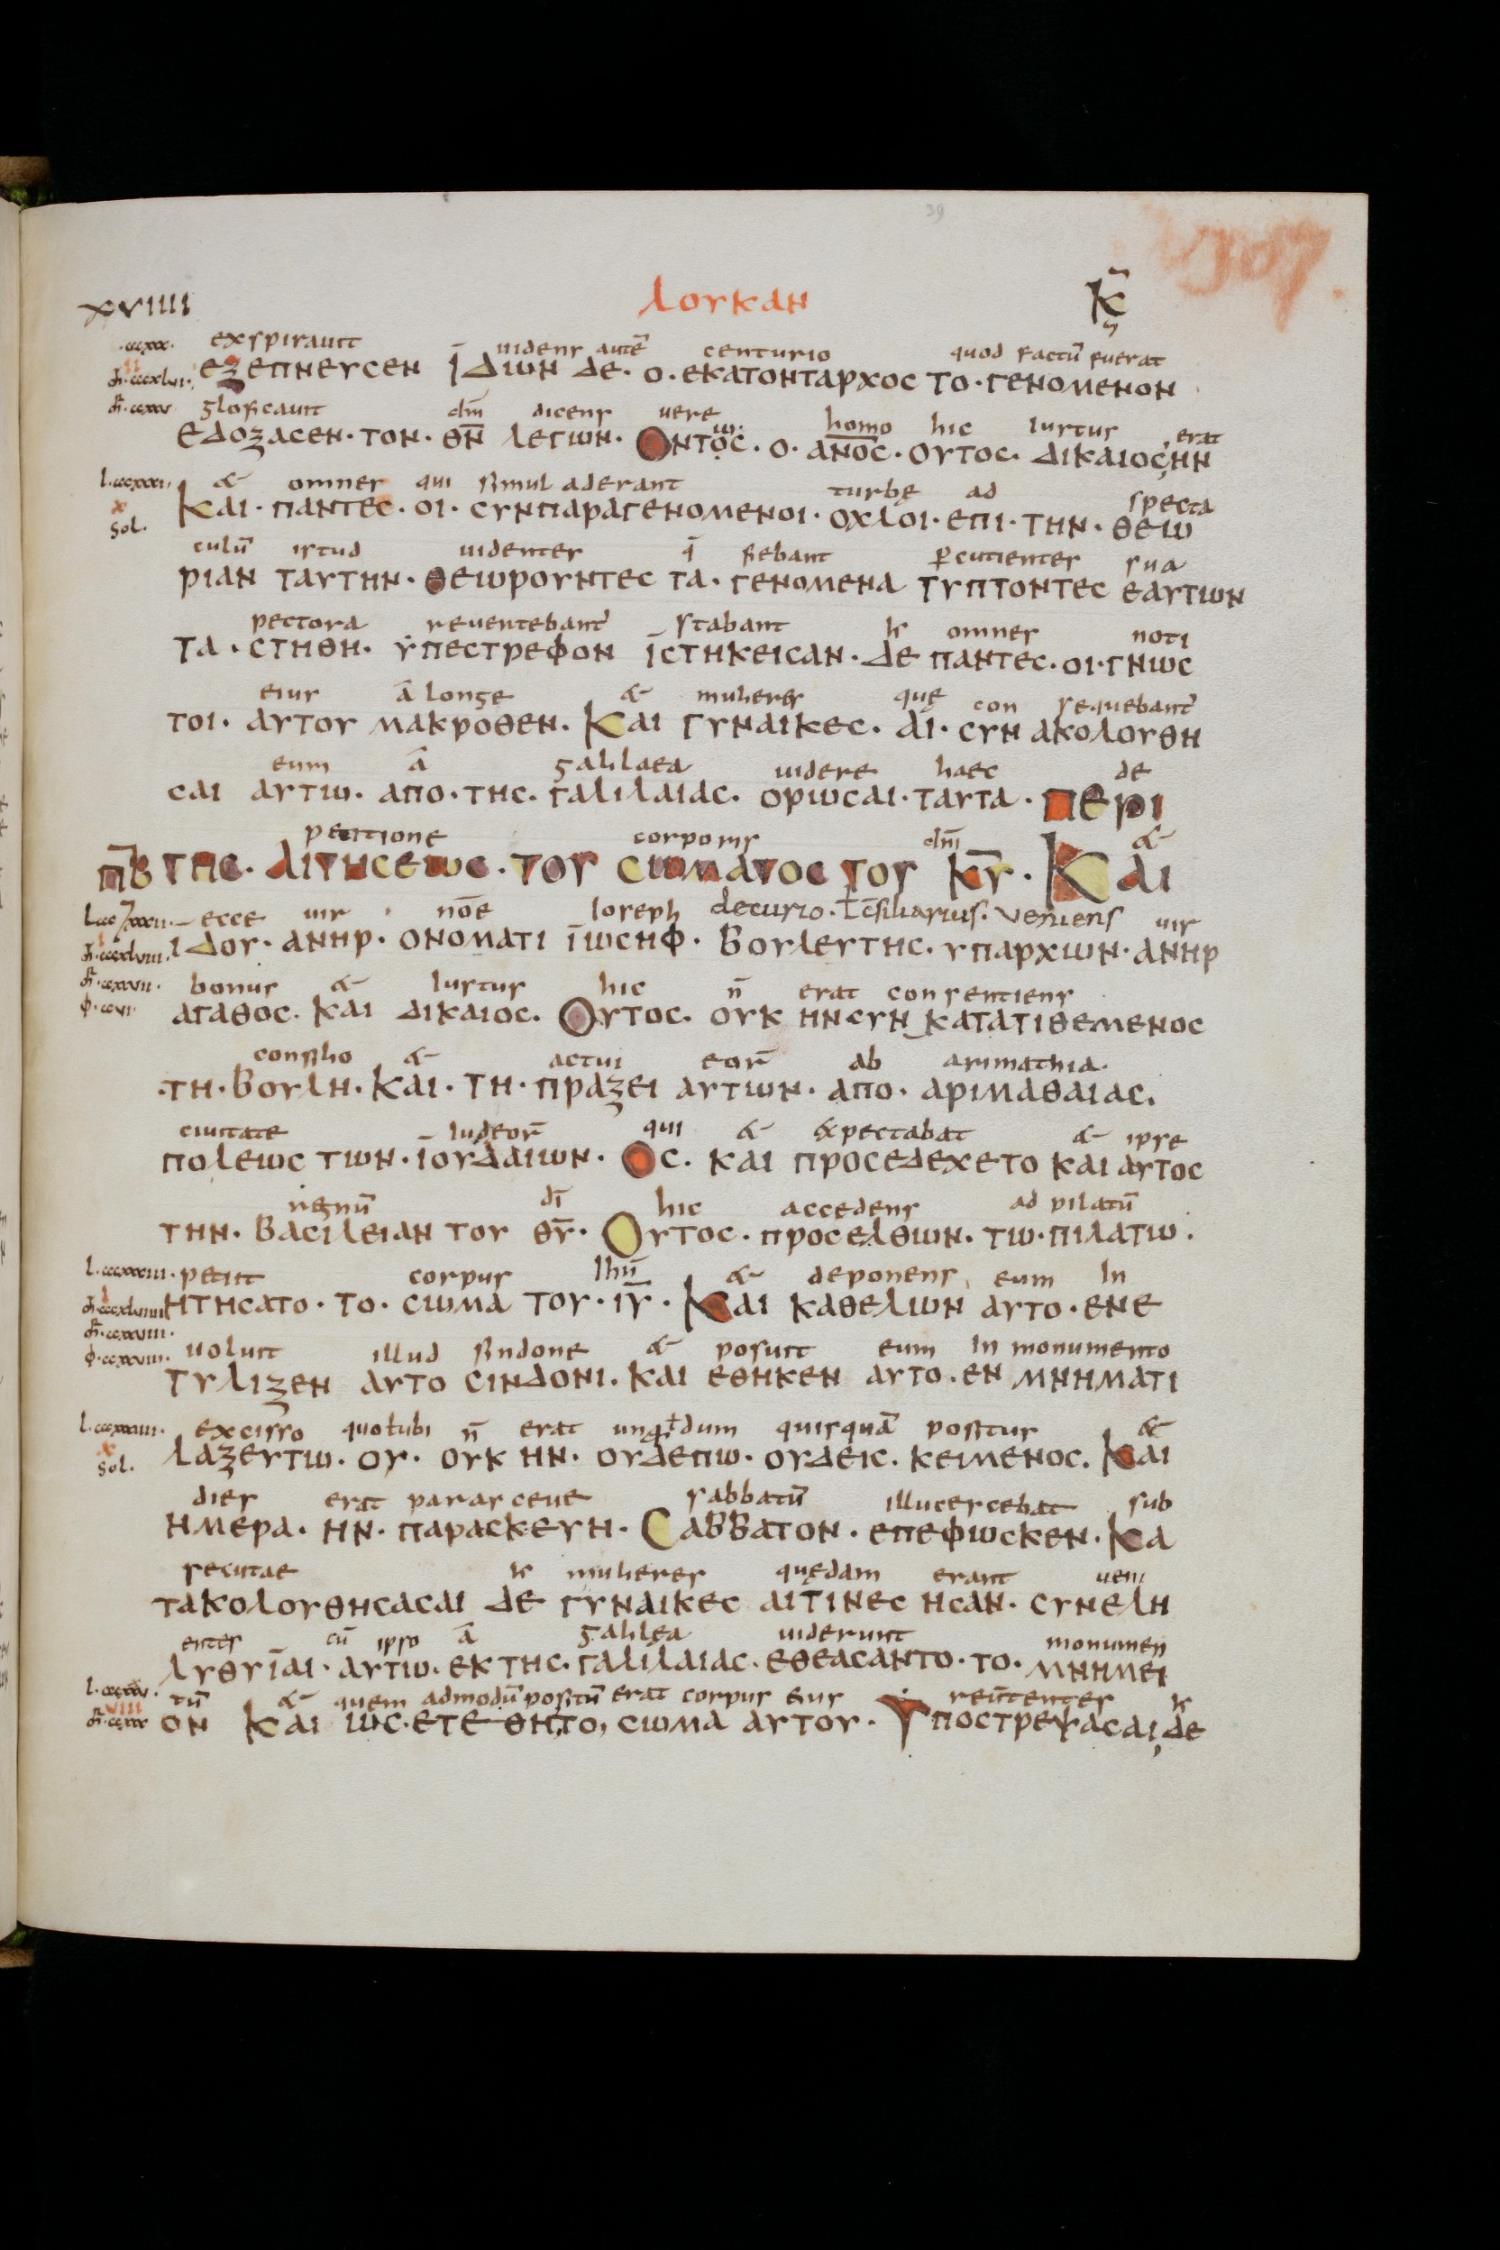 39
307
xviiii λουκαν κ̄
exspirauit uidens autē centurio quod factū fuerat
εξεπνευσεν ϊδιων δε· ο· εκατονταρχος το· γενομενον
glorificauit dm̄ dicens uere homo hic iustus erat
εδοξασεν· τον· θν̄ λεγων· Οντος· ο· ανος· ουτος· δικαιος ην
sol. & omnes qui simul aderant turbę ad specta
Και· παντες· οι· συνπαραγενομενοι· οχλοι· επι· την· θεω
culū istud uidentes q̄ fiebant p̄cutientes sua
ριαν ταυτην· θεωρουντες τα· γενομενα τυπτοντες εαυτων
pectora reuertebant' stabant omnes noti
τα· στηθη· ϋπεστρεφον ϊστηκεισαν· δε παντες· οι· γνως
eius ā longe & mulieres quę con sequebant'
τοι· αυτου μακροθεν· Και γυναικες· αι· συν ακολουθη
eum ā galilaea uidere haec de
σαι αυτω· απο· της· γαλιλαιας· οριωσαι· ταυτα· περι
petitione corporis dn̄i &
π̄β της· αιτησεως· του σωματος του κ̄υ· Και
ecce uir nōe Ioseph decurio· ł c̄siliarius· veniens uir
ιδου· ανηρ· ονοματι ϊωσηφ· βουλευτης· υπαρχων· ανηρ
bonus & Iustus hic n̄ erat consentiens
αγαθος· και δικαιος· Ουτος· ουκ ην συν κατατιθεμενος
consilio & actui eor̄ ab arimathia·
·τη· βουλη· και· τη· πραξει αυτων· απο· αριμαθαιας·
ciuitate Iudeor̄ qui & expectabat & ipse
πολεως των· ϊουδαιων· Ος· και προσεδεχετο και αυτος
regnū dī hic accedens ad pilatū
την· βασιλειαν του θ̄υ· Ουτος· προσελθων· τω· πιλατω·
petiit corpus Ihū & deponens eum In
ητησατο· το· σωμα του· ῑυ· Και καθελιων αυτο· ενε
uoluit illud sindone & posuit eum In monumento
τυλιξεν αυτο σινδονι· και εθηκεν αυτο· εν μνηματι
exciso quo ł ubi n̄ erat quisquā positus &
λαξευτω· ου· ουκ ην· ουδεπω· ουδεις· κειμενος· Και
sol.
dies erat parasceue sabbatū illucescebat sub
ημερα· ην· παρασκευη· Σαββατον· επεφωσκεν· Κα
secutae mulieres quędam erant ueni
τακολουθησασαι δε γυναικες αιτινες ησαν· συνελη
entes cū ipso ā galilęa uiderunt monumen
λυθυϊαι· αυτω· εκ της· γαλιλαιας· εθεασαντο· το· μνημει
tū & quem admodū positū erat corpus eius
ον Και ως· ετεθη το, σωμα αυτου· Υποστρεψασαι, δε